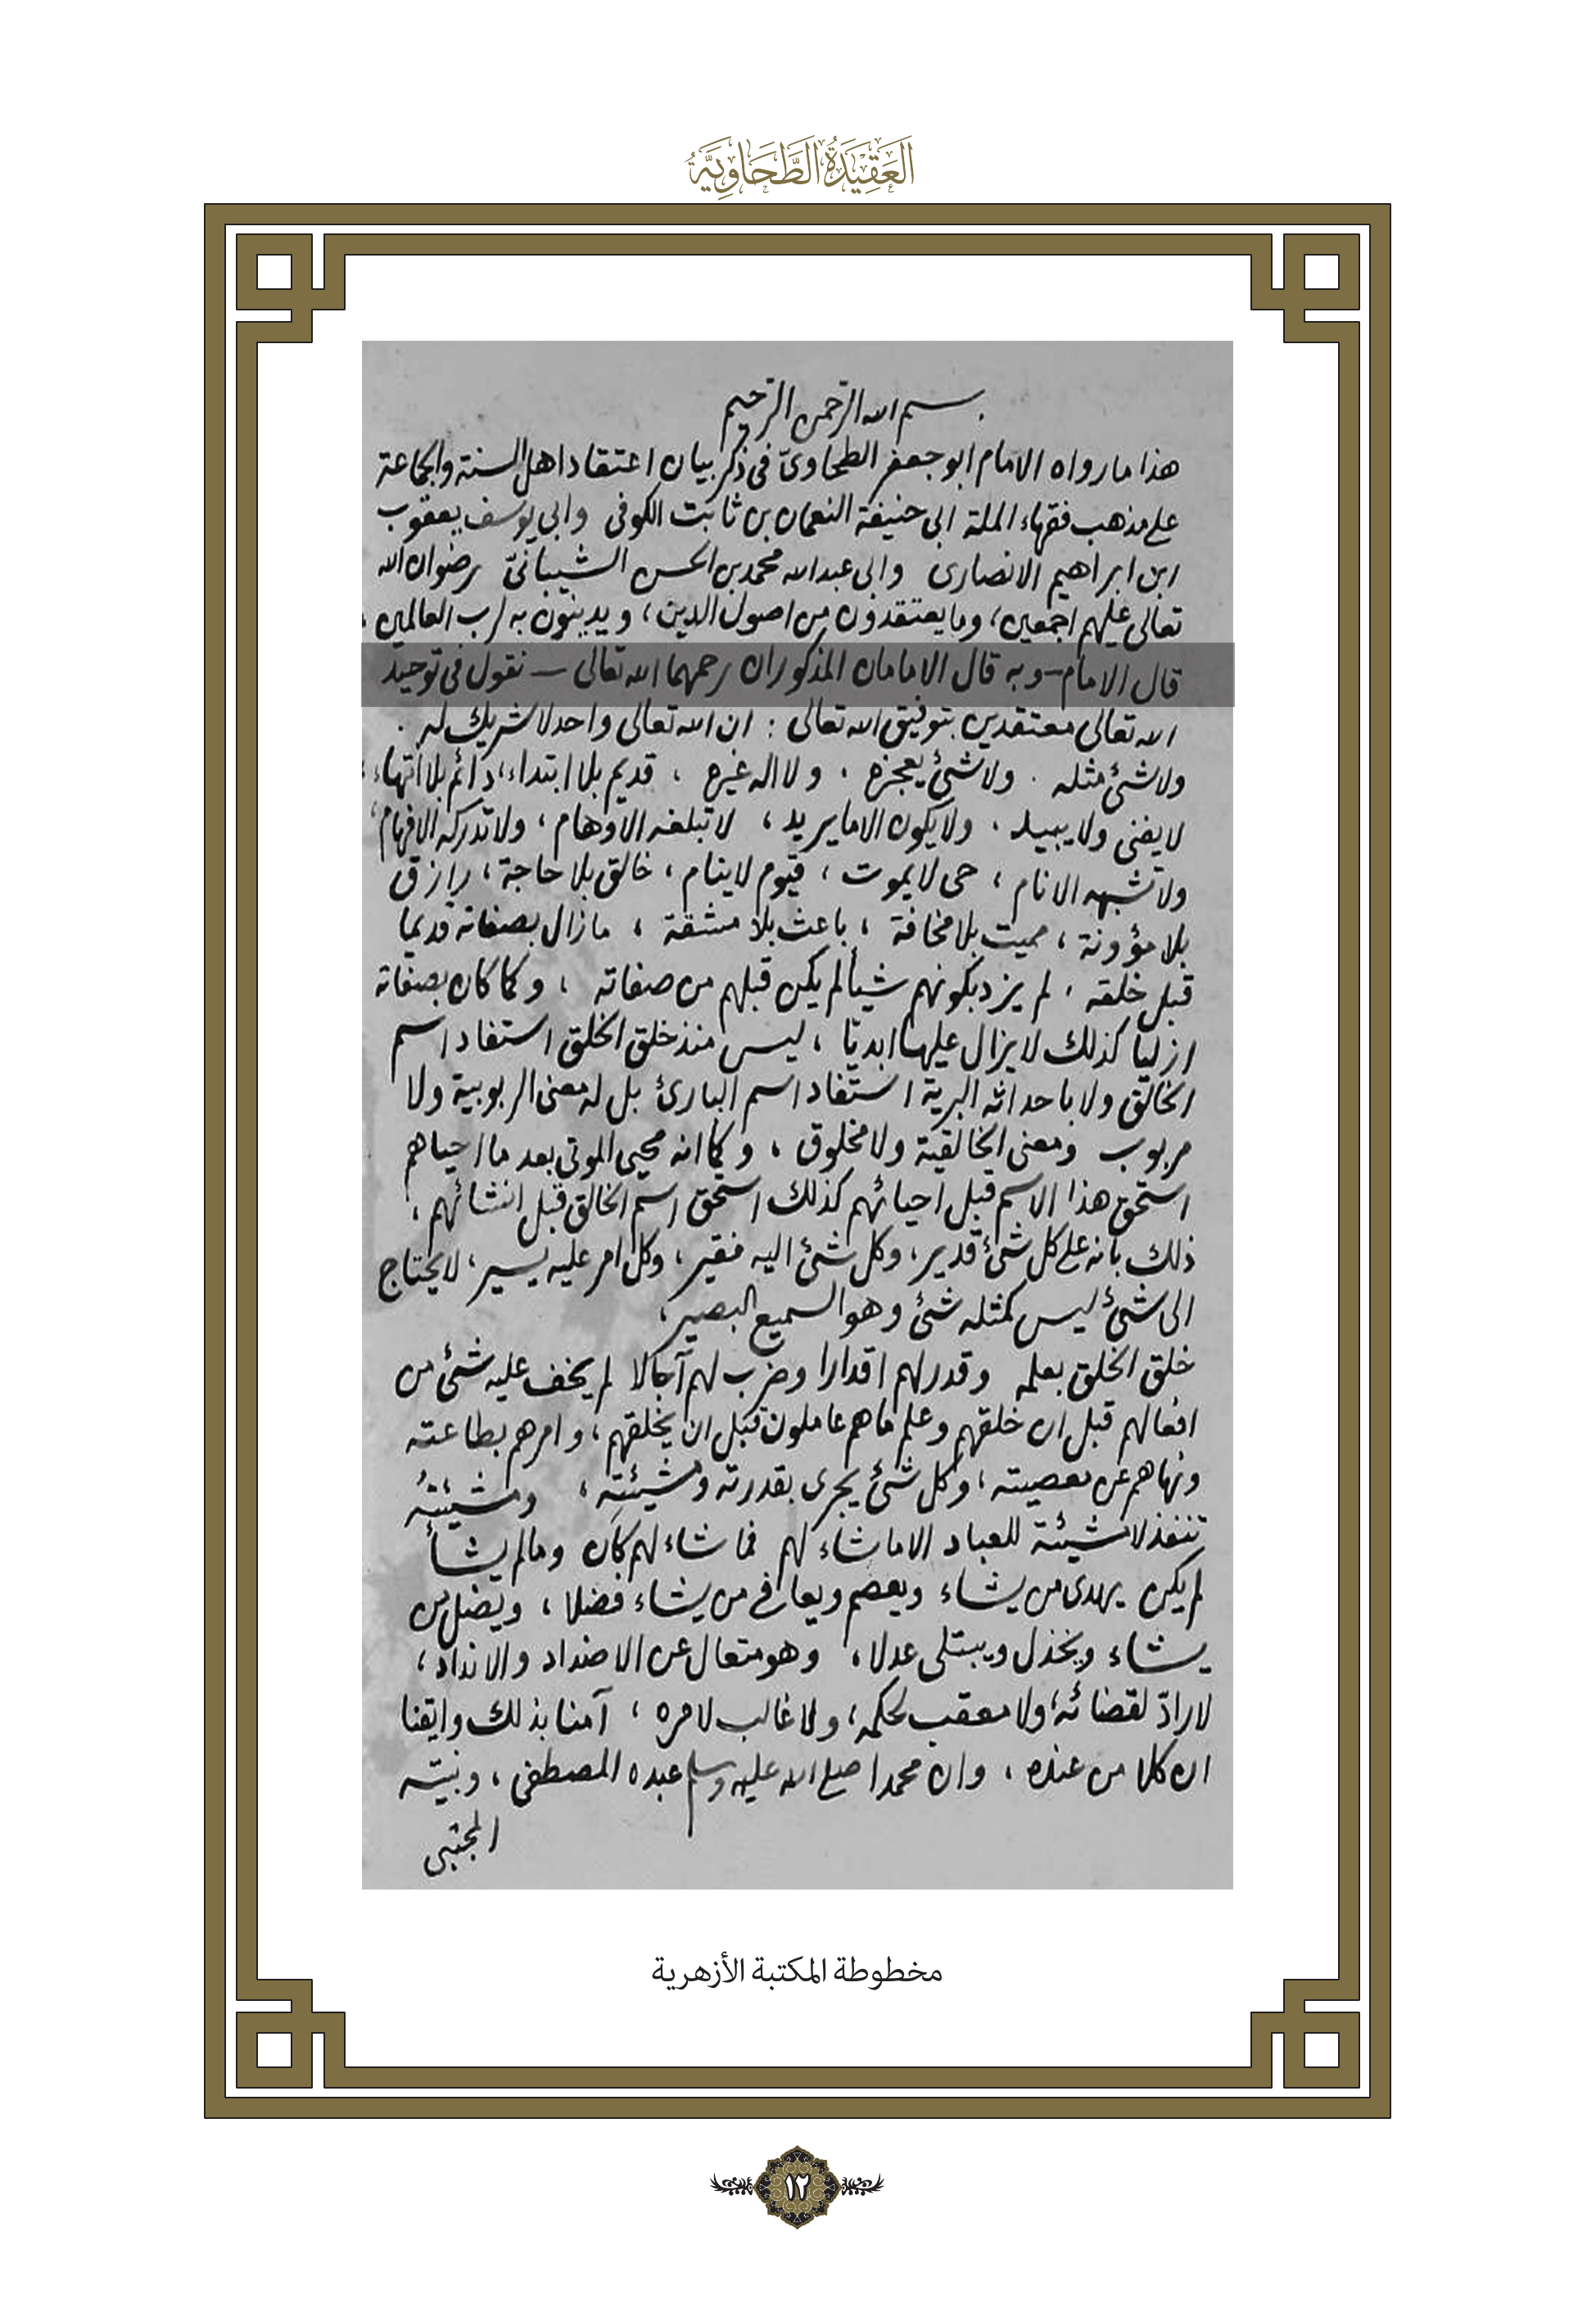 العَقِيْدَةُ الطَّحَاوِيَّةُ
بسم الله الرّحمن الرّحيم
هذا ما رواه الامام ابو جعفر الطحاوىّ فى ذكر بيان اعتقاد اهل السنة والجماعة
على مذهب فقهاء الملة ابى حنيفة النعمان بن ثابت الكوفى وابى يوسف يعقوب
ابن ابراهيم الانصارى وابى عبد الله محمد بن الحسن الشيبانىّ رضوان الله
تعالى عليهم اجمعين، وما يعتقدون من اصول الدين، ويدينون به لرب العالمين،
قال الامام – وبه قال الامامان المذكوران رحمهما الله تعالى – نقول فى توحيد
الله تعالى معتقدين بتوفيق الله تعالى : ان الله تعالى واحد لا شريك له .
ولا شئ مثله . ولا شئ يعجزه . ولا اله غيره ، قديم بلا ابتداء، دائم بلا انتهاء،
لا يفنى ولا يبيد . ولا يكون الا ما يريد ، لا تبلغه الاوهام ، ولا تدركه الافهام،
ولا تشبهه الانام ، حى لا يموت ، قيوم لا ينام ، خالق بلا حاجة ، رازق
بلا مؤونة ، مميت بلا مخافة ، باعث بلا مشقة ، ما زال بصفاته قديما
قبل خلقه ، لم يزدد بكونهم شيأ لم يكن قبلهم من صفاته ، وكما كان بصفاته
ازليا كذلك لا يزال عليها ابديّا ، ليس منذ خلق الخلق استفاد اسم
الخالق ولا باحداثه البرية استفاد اسم البارئ بل له معنى الربوبية ولا
مربوب ومعنى الخالقية ولا مخلوق ، وكما انه محيى الموتى بعد ما احياهم
استحق هذا الاسم قبل احيائهم كذلك استحق اسم الخالق قبل انشائهم ،
ذلك بانه على كل شئ قدير، وكل شئ اليه فقير، وكل امر عليه يسير، لا يحتاج
الى شئ ليس كمثله شئ وهو السميع البصير،
خلق الخلق بعلمه وقدر لهم اقدارا وضرب لهم آجالا لم يخف عليه شئ من
افعالهم قبل ان خلقهم وعلم ما هم عاملون قبل ان يخلقهم ، وامرهم بطاعته
ونهاهم عن معصيته ، وكل شئ يجرى بقدرته ومشيئتِه ، ومشيئتُه
تنفذ لا مشيئة للعباد الا ما شاء لهم فما شاء لهم كان وما لم يشأ
لم يكن يهدى من يشاء ويعصم ويعافى من يشاء فضلا ، ويضل من
يشاء ويخذل ويبتلى عدلا، وهو متعال عن الاضداد والانداد،
لا رادّ لقضائه، ولا معقب لحكمه، ولا غالب لامره ، آمنا بذلك وايقنا
ان كلا من عنده ، وان محمدا صلى الله عليه وسلم عبده المصطفى ، ونبيّه
المجتبى
مخطوطة المكتبة الأزهرية
١٢